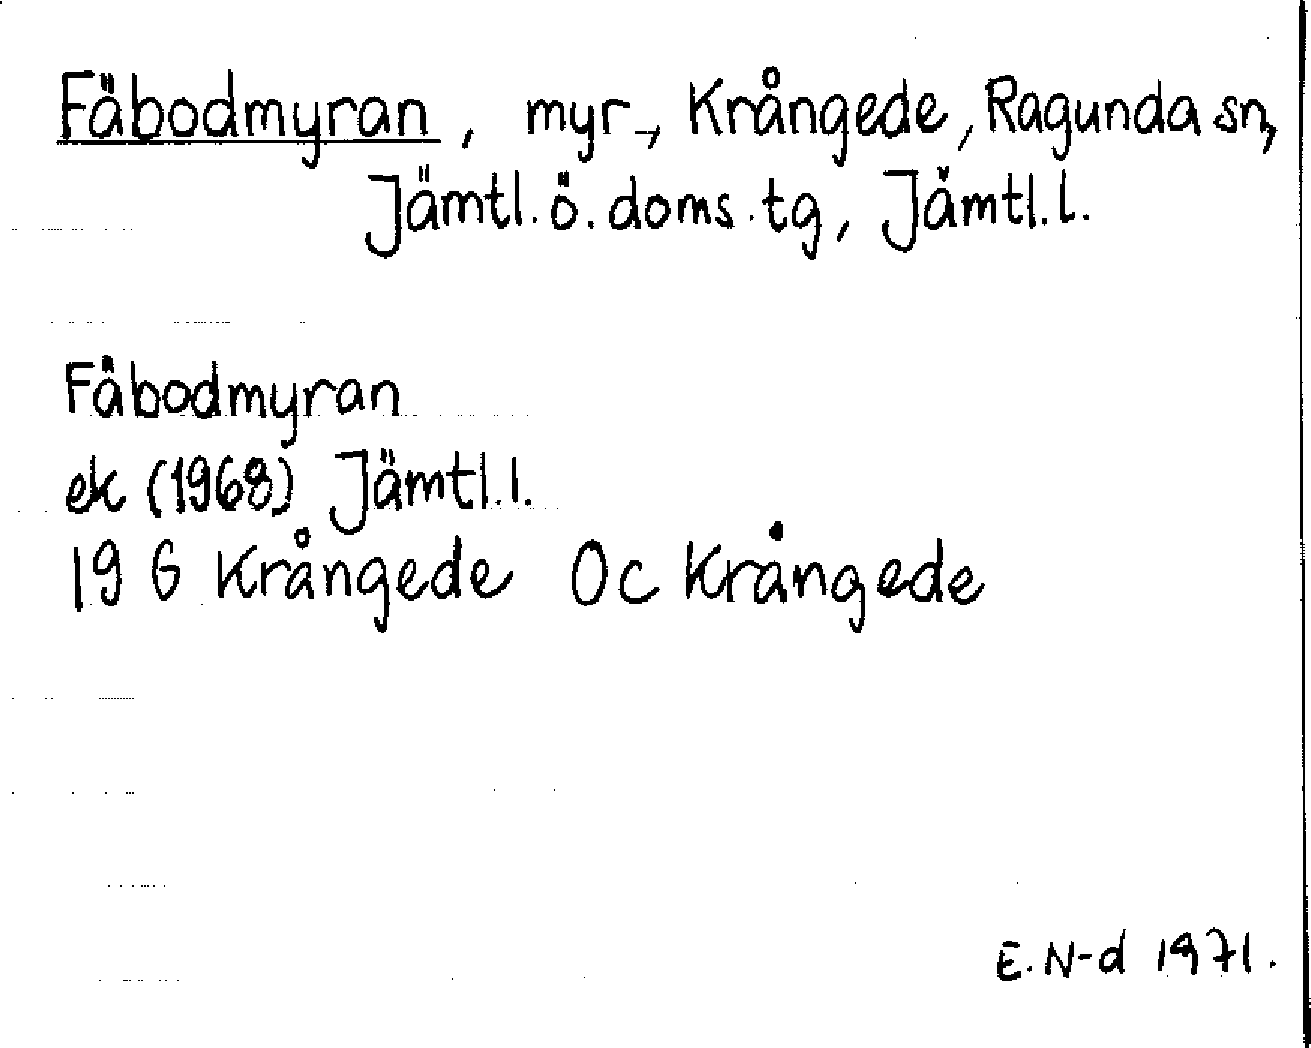 Fäbodmyran, myr, Krångede, Ragunda sn,
Jämtl. ö. doms. tg, Jämtl. l.
Fäbodmyran
ek (1968) Jämtl. l.
19 G Krångede Oc Krångede
E. N-d 1971.